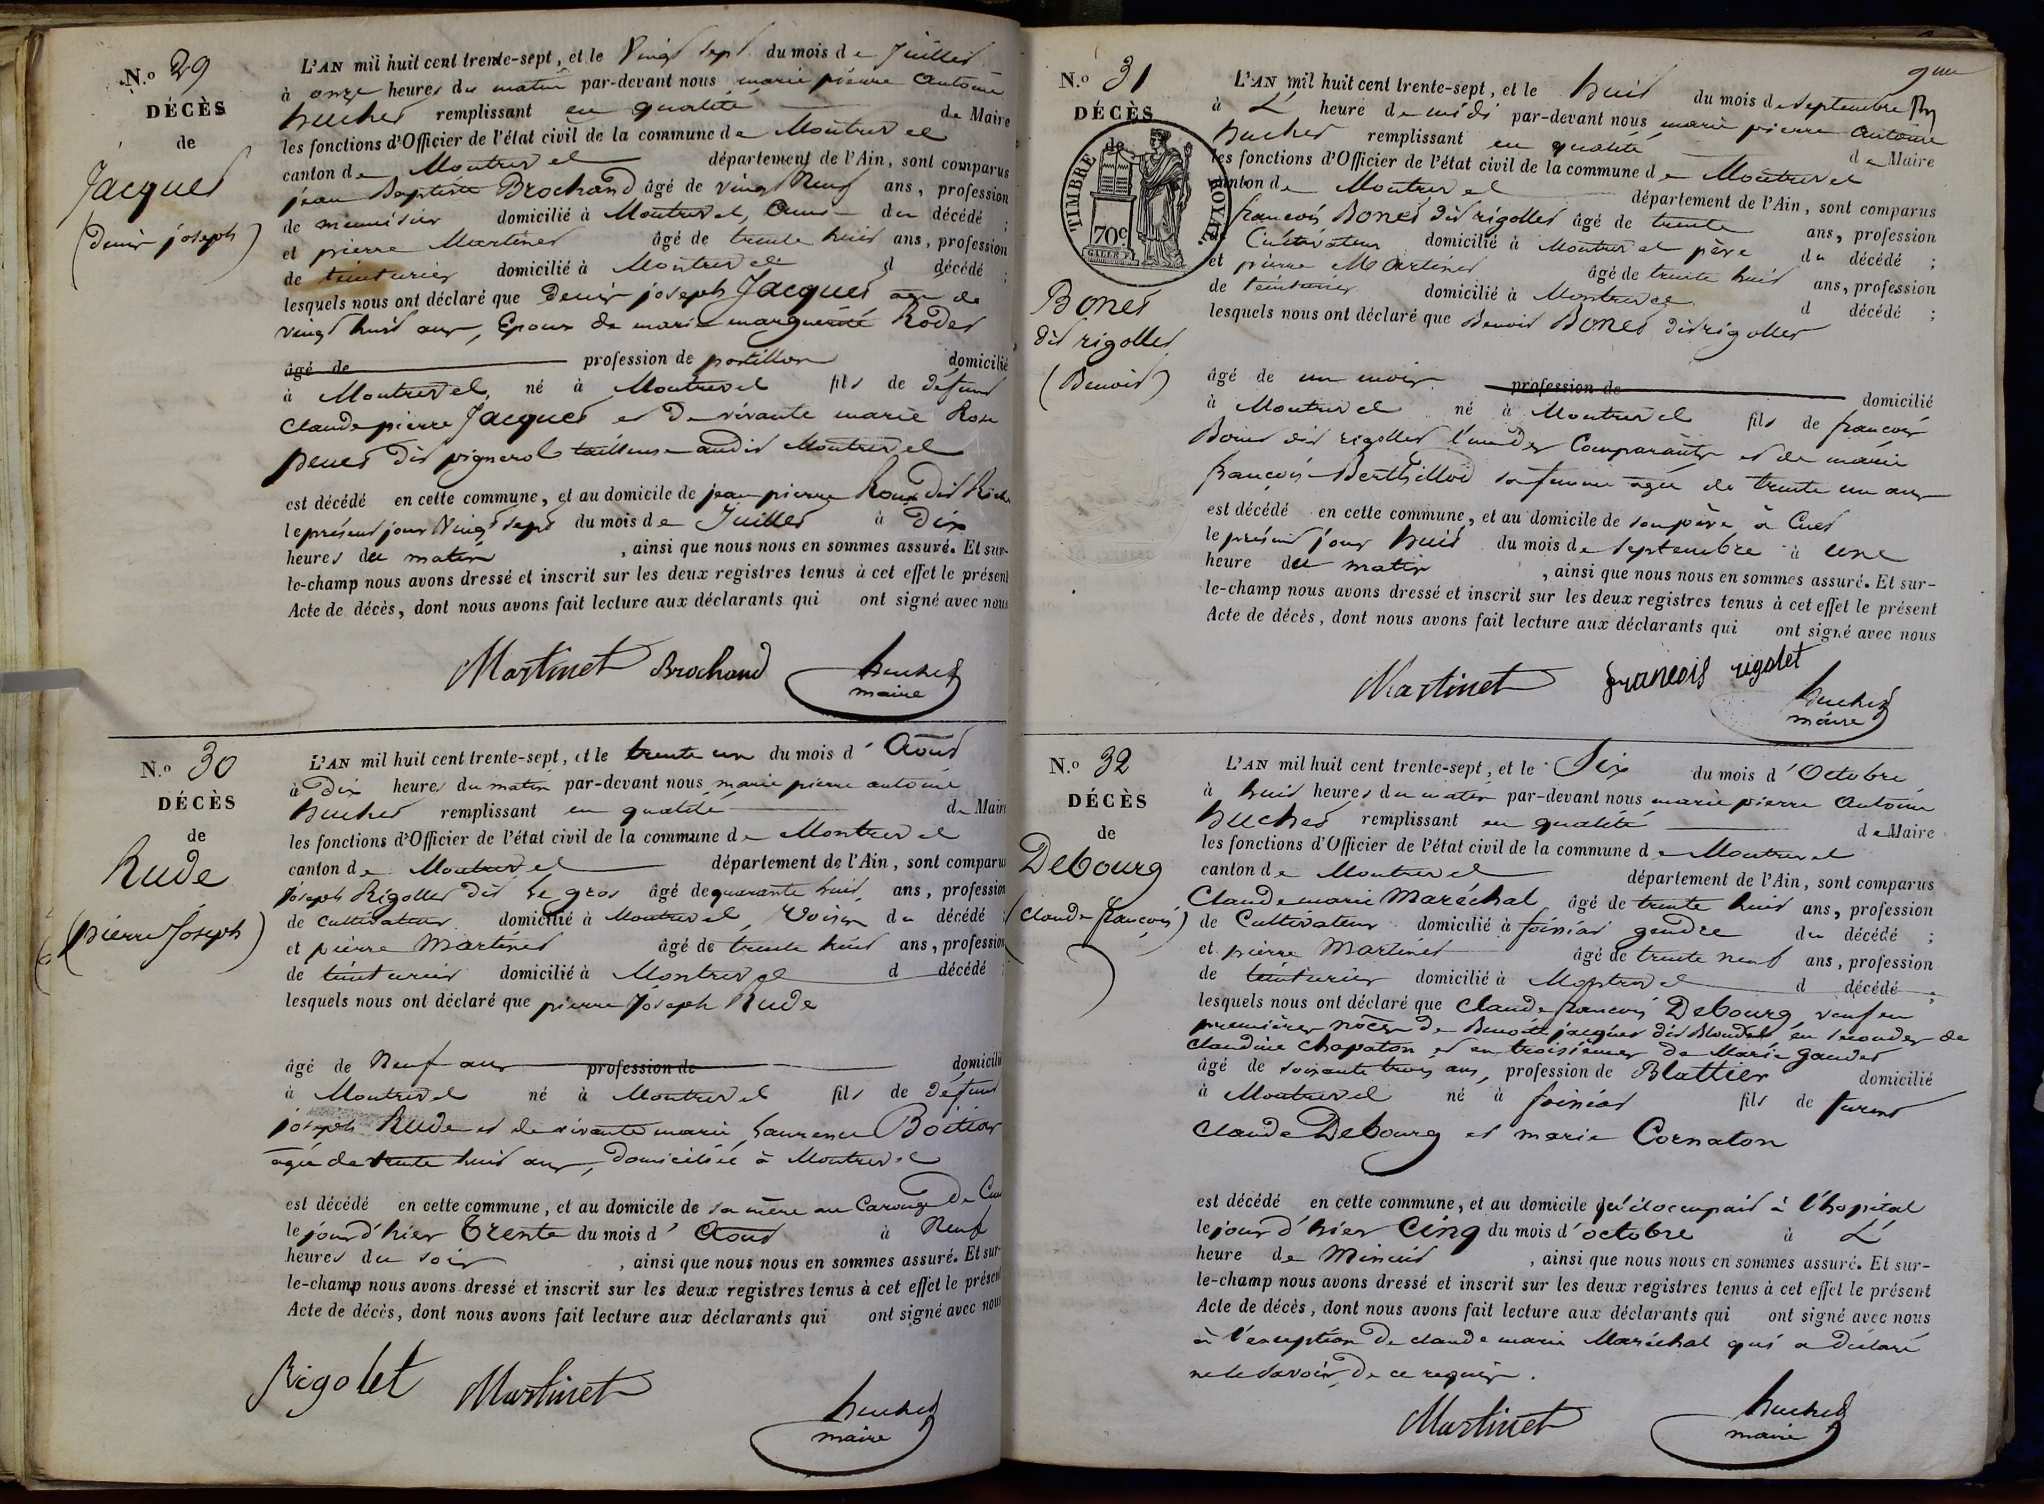 N.o 29
DÉCÈS
de
Jacquet
(Denis joseph)
L'AN mil huit cent trente-sept, et le Vingt sept du mois de Juillet
à onze heures du matin par-devant nous marie pierre antoine
huchet remplissant en qualité de Maire
les fonctions d'Officier de l'état civil de la commune de Montrevel
canton de Montrevel département de l'Ain, sont comparus
jean Baptiste Brochand âgé de vingt Neuf ans, profession
de menuisier domicilié à Montrevel, Ami du décédé ;
et pierre Martinet âgé de trente huit ans, profession
de teinturier domicilié à Montrevel d décédé ;
lesquels nous ont déclaré que Denis joseph Jacquet age de
vingt huit ans, Epoux de marie marguerite Rodet
âgé de profession de postillon domicilié
à Montrevel, né à Montrevel fils de défunt
Claude pierre Jacquet et De vivante marie Rose
penet dit pignerol tailleuse audit Montrevel
est décédé en cette commune, et au domicile de jean pierre Roux dit
le présent jour Vingt sept du mois de Juillet à Dix
heures du matin , ainsi que nous nous en sommes assuré. Et sur-
le-champ nous avons dressé et inscrit sur les deux registres tenus à cet effet le présent
Acte de décès, dont nous avons fait lecture aux déclarants qui ont signé avec nous
Martinet Brochand huchet
maire
N.o 30
DÉCÈS
de
Rude
(pierre Joseph)
L'AN mil huit cent trente-sept, et le trente un du mois d' Aout
à Dix heures du matin par-devant nous marie pierre antoine
huchet remplissant en qualité de Maire
les fonctions d'Officier de l'état civil de la commune de Montrevel
canton de Montrevel département de l'Ain, sont comparus
Joseph Rigollet dit le gros âgé de quarante huit ans, profession
de cultivateur domicilié à Montrevel, Voisin du décédé ;
et pierre Martinet âgé de trente huit ans, profession
de teinturier domicilié à Montrevel d décédé ;
lesquels nous ont déclaré que pierre Joseph Rude
âgé de Neuf ans profession de domicilié
à Montrevel né à Montrevel fils de défunt
joseph Rude et de vivante marie Laurence Boitior
agée de trente huit ans, Domiciliée à Montrevel
est décédé en cette commune, et au domicile de sa mère au Carouge De
le jour d'hier trente du mois d' Aout à Neuf
heures du soir , ainsi que nous nous en sommes assuré. Et sur-
le-champ nous avons dressé et inscrit sur les deux registres tenus à cet effet le présent
Acte de décès, dont nous avons fait lecture aux déclarants qui ont signé avec nous
Rigolet Martinet huchet
maire
N.o 31
DÉCÈS
de
TIMBRE ROYAL.
70c
Bonet
dit rigollet
(Benoit)
L'AN mil huit cent trente-sept, et le huit du mois de septembre
à L' heure de midi par-devant nous marie pierre antoine
huchet remplissant en qualité de Maire
les fonctions d'Officier de l'état civil de la commune de Montrevel
canton de Montrevel département de l'Ain, sont comparus
francois Bonet dit rigollet âgé de trente ans, profession
de Cultivateur domicilié à Montrevel père du décédé ;
et pierre Martinet âgé de trente huit ans, profession
de teinturier domicilié à Montrevel d décédé ;
lesquels nous ont déclaré que Benoit Bonet dit rigollet
âgé de un mois profession de domicilié
à Montrevel né à Montrevel fils de francois
Bonet dit rigollet l'un des Comparants et de marie
françois Berthillod sa femme agée de trente un ans
est décédé en cette commune, et au domicile de son père à Cuet
le présent jour huit du mois de septembre à une
heure du matin , ainsi que nous nous en sommes assuré. Et sur-
le-champ nous avons dressé et inscrit sur les deux registres tenus à cet effet le présent
Acte de décès, dont nous avons fait lecture aux déclarants qui ont signé avec nous
Martinet francois rigolet
huchet
maire
N.o 32
DÉCÈS
de
Debourg
(Claude françois)
L'AN mil huit cent trente-sept, et le Six du mois d'Octobre
à huit heures du matin par-devant nous marie pierre Antoine
huchet remplissant en qualité de Maire
les fonctions d'Officier de l'état civil de la commune de Montrevel
canton de Montrevel département de l'Ain, sont comparus
Claude marie Maréchal âgé de trente huit ans, profession
de Cultivateur domicilié à foissiat gendre du décédé ;
et pierre Martinet âgé de trente neuf ans, profession
de teinturier domicilié à Montrevel d décédé ;
lesquels nous ont déclaré que Claude francois Debourg, veuf en
premières noces de Benoite jacquet dit Blondel, en secondes de
Claudine Chapaton et en troisièmes de Marie Gaudet
âgé de soixante trois ans, profession de Blattier domicilié
à Montrevel né à foissiat fils de furent
Claude Debourg et marie Cornaton
est décédé en cette commune, et au domicile qu'il occupait à l'hopital
le jour d'hier Cinq du mois d'octobre à L'
heure de Minuit , ainsi que nous nous en sommes assuré. Et sur-
le-champ nous avons dressé et inscrit sur les deux registres tenus à cet effet le présent
Acte de décès, dont nous avons fait lecture aux déclarants qui ont signé avec nous
à l'exception De claude marie Maréchal qui a déclaré
ne le savoir, de ce requis.
Martinet huchet
maire